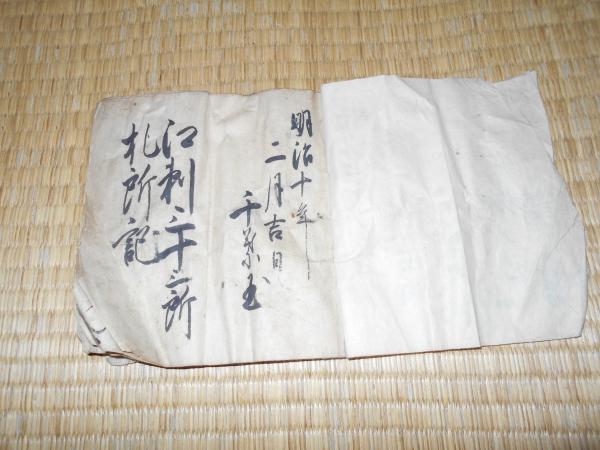 明治十年
二月吉日
千葉玉
江刺三十三所
札所記